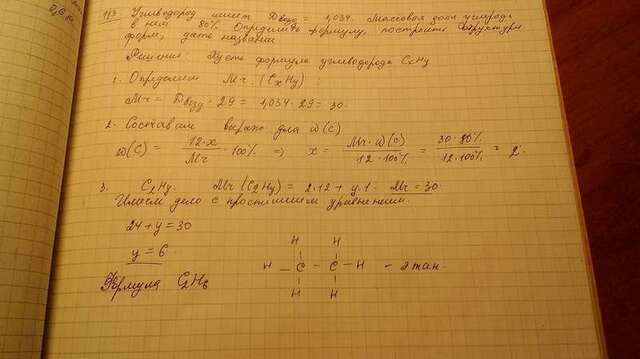 №3 Углеводород имеет Dвозд = 1,034. Массовая доля углерода
в нем 80%. Определить формулу, построить структурн.
форм., дать название
Решение: Пусть формула углеводорода CxHy
1. Определяем Mr (CxHy) :
Mr = Dвозд · 29 = 1,034 · 29 = 30
2. Составим выраж. для ω(C)
ω(C) = 12·x / Mr · 100% => x = Mr · ω(C) / 12 · 100% = 30 · 80% / 12 · 100% = 2
3. C2Hy. Mr (C2Hy) = 2·12 + y·1. Mr = 30
Имеем дело с простейшим уравнением.
24 + y = 30
y = 6
H H
H – C – C – H – этан.
H H
Формула C2H6